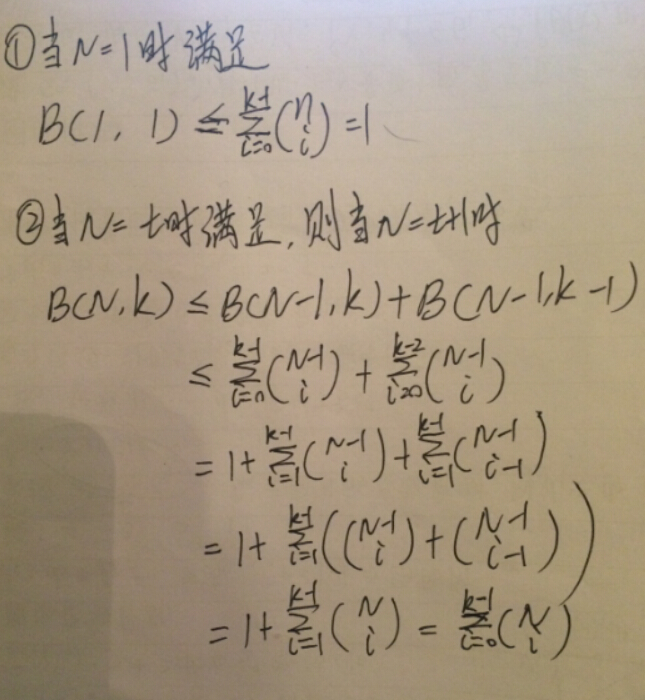 ①当N=1时满足
B(1, 1) ≤ \sum_{i=0}^{k-1} \binom{n}{i} = 1
②当N=t时满足,则当N=t+1时
B(N,k) ≤ B(N-1,k) + B(N-1,k-1)
≤ \sum_{i=0}^{k-1} \binom{N-1}{i} + \sum_{i=0}^{k-2} \binom{N-1}{i}
= 1 + \sum_{i=1}^{k-1} \binom{N-1}{i} + \sum_{i=1}^{k-1} \binom{N-1}{i-1}
= 1 + \sum_{i=1}^{k-1} (\binom{N-1}{i} + \binom{N-1}{i-1})
= 1 + \sum_{i=1}^{k-1} \binom{N}{i} = \sum_{i=0}^{k-1} \binom{N}{i}